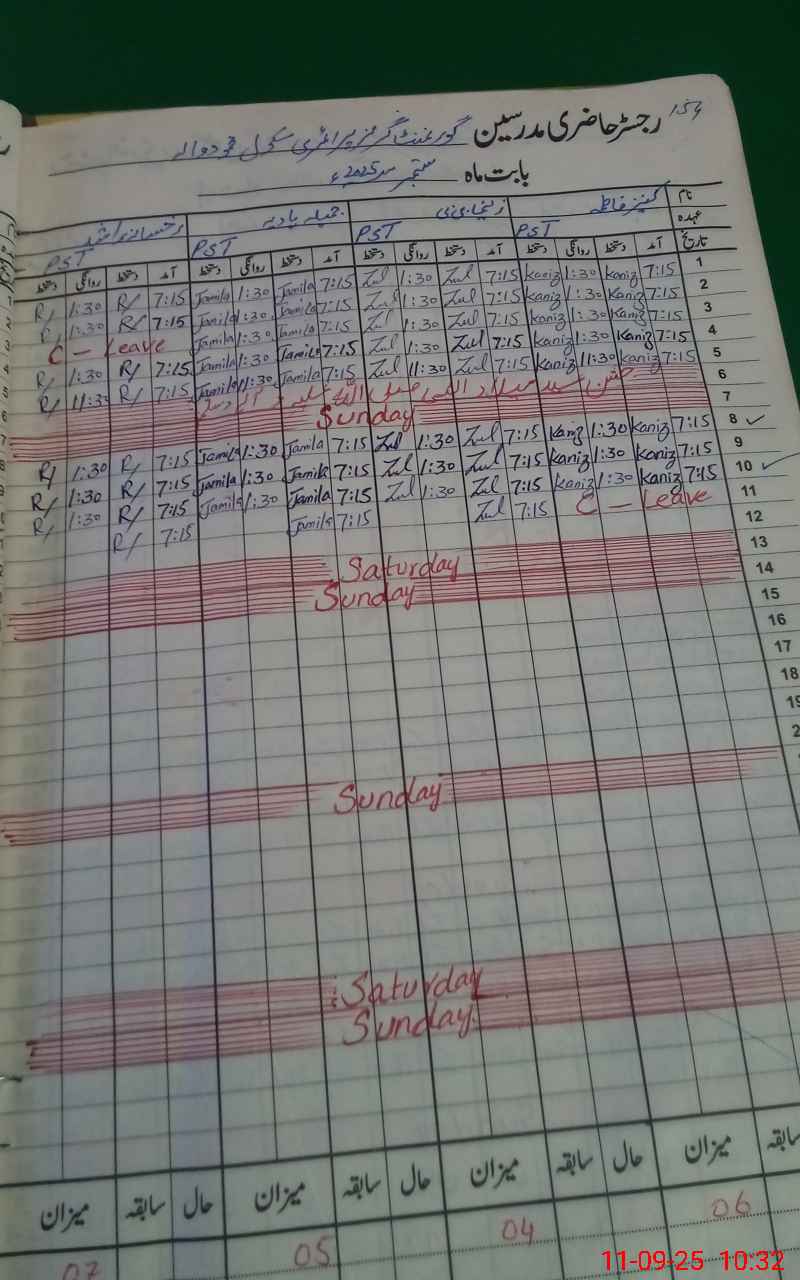 154
رجسٹر حاضری مدرسین گورنمنٹ گرلز پرائمری سکول
بابت ماہ ستمبر 2025ء
نام کنیز فاطمہ زلیخا بی بی جمیلہ
عہدہ PST PST PST PST
تاریخ آمد دستخط روانگی دستخط آمد دستخط روانگی دستخط آمد دستخط روانگی دستخط آمد دستخط روانگی دستخط
1 7:15 Kaniz 1:30 Kaniz 7:15 Zul 1:30 Zul 7:15 Jamila 1:30 Jamila 7:15 R/ 1:30 R/
2 7:15 Kaniz 1:30 Kaniz 7:15 Zul 1:30 Zul 7:15 Jamila 1:30 Jamila 7:15 R/ 1:30 R/
3 7:15 Kaniz 1:30 Kaniz 7:15 Zul 1:30 Zul 7:15 Jamila 1:30 Jamila C - Leave
4 7:15 Kaniz 1:30 Kaniz 7:15 Zul 1:30 Zul 7:15 Jamila 1:30 Jamila 7:15 R/ 1:30 R/
5 7:15 Kaniz 11:30 Kaniz 7:15 Zul 11:30 Zul 7:15 Jamila 11:30 Jamila 7:15 R/ 11:30 R/
6 جشن عید میلاد النبی صلی اللہ علیہ و آلہ وسلم
7 Sunday
8 7:15 Kaniz 1:30 Kaniz 7:15 Zul 1:30 Zul 7:15 Jamila 1:30 Jamila 7:15 R/ 1:30 R/
9 7:15 Kaniz 1:30 Kaniz 7:15 Zul 1:30 Zul 7:15 Jamila 1:30 Jamila 7:15 R/ 1:30 R/
10 7:15 Kaniz 1:30 Kaniz 7:15 Zul 1:30 Zul 7:15 Jamila 1:30 Jamila 7:15 R/ 1:30 R/
11 C - Leave 7:15 Zul 7:15 Jamila 7:15 R/
12
13 Saturday
14 Sunday
15
16
17
18
19
Sunday
Saturday
Sunday
سابقہ میزان حال سابقہ میزان حال سابقہ میزان حال سابقہ میزان
06 04 05 07
11-09-25 10:32